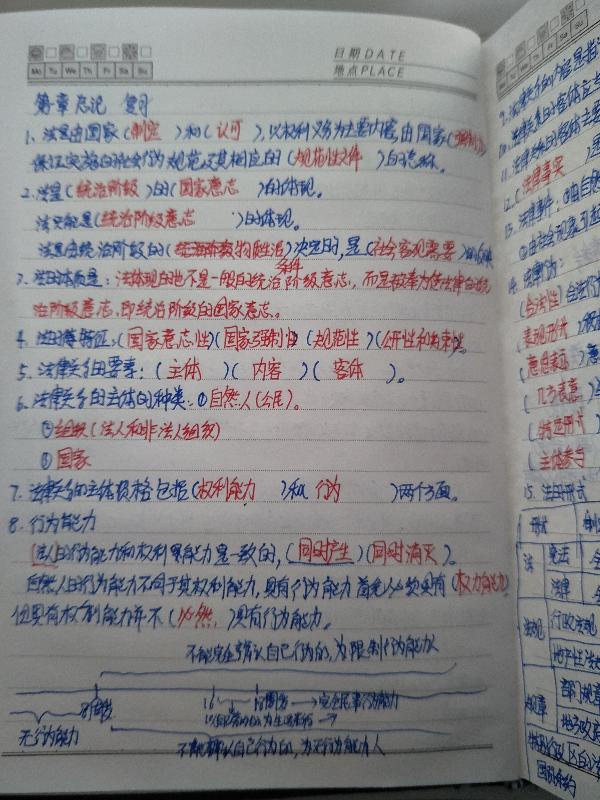 日期 DATE
地点 PLACE
Mo Tu We Th Fr Sa Su
第一章总论 复习
1、法是由国家(制定 )和(认可 ),以权利义务为主要内容,由国家(强制力)
保证实施的社会行为规范及其相应的(规范性文件 )的总称。
2、法是(统治阶级 )的(国家意志 )的体现。
法只能是(统治阶级意志 )的体现。
法是由统治阶级的(物质生活条件)决定的,是(社会客观需要)的
3、法的本质是:法体现的也不是一般的统治阶级意志,而是被奉为法律的统
治阶级意志,即统治阶级的国家意志。
4、法的特征:(国家意志性)(国家强制性)(规范性)(公开性和
5、法律关系的要素:(主体 )( 内容 )( 客体 )。
6、法律关系的主体的种类:①自然人(公民)。
②组织(法人和非法人组织)
③国家
7、法律关系的主体资格包括(权利能力 )和( 行为 )两个方面。
8、行为能力
(法人)的行为能力和权利能力是一致的,(同时产生)(同时消灭)。
自然人的行为能力不同于其权利能力,具有行为能力首先必须具有(权力能力)
但具有权利能力并不(必然 )具有行为能力。
不能完全辨认自己行为的,为限制行为能力人
8周岁 16 18周岁 → 完全民事行为能力
无行为能力
不能辨认自己行为的,为无行为能力人
12.(法律事实
13、法律事件:①由自然
14、法律行为:
(合法性)合法行为
(表现形式
(意思表示)意
(几方表意)
(特定形式)
(主体参与
15、法的形式
形式
法 宪法
法律
法规 行政法规
地方性法
规章 部门规章
地方政府
特别行政区的法
国际条约